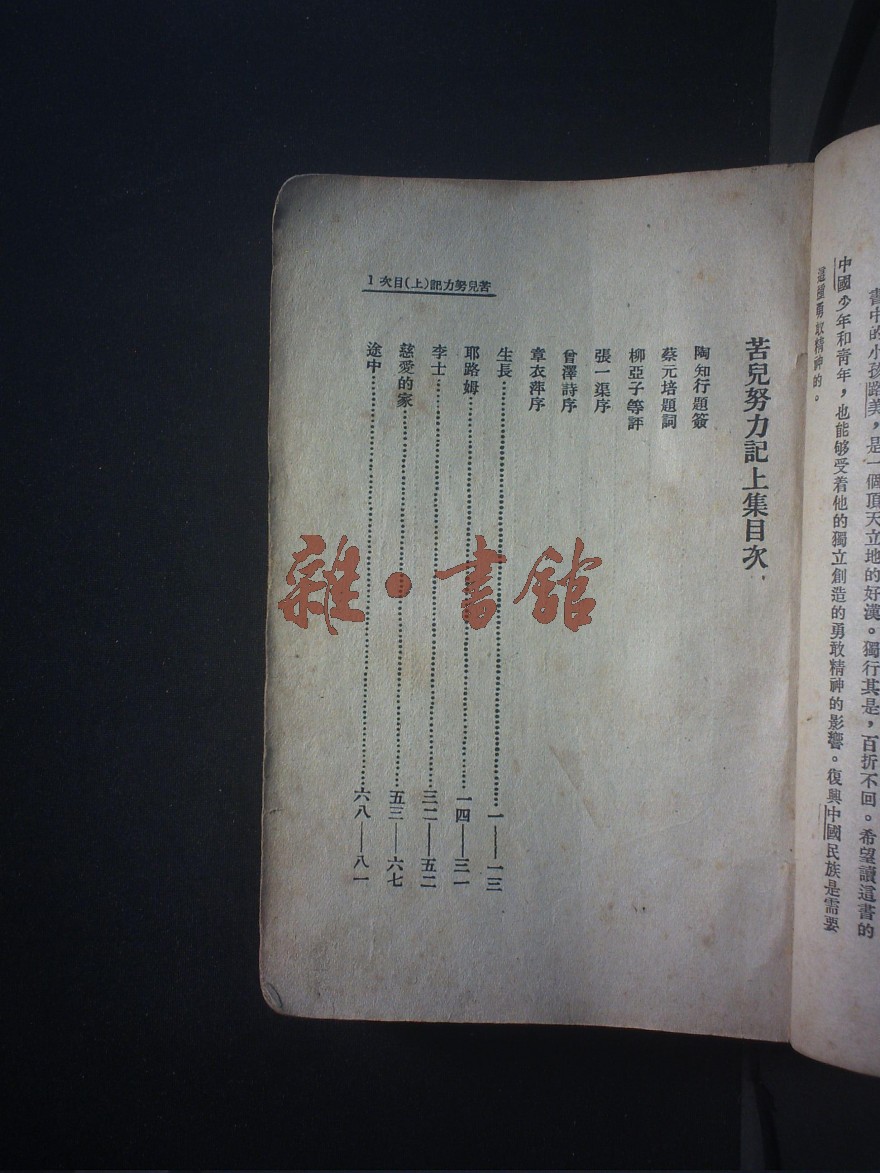 書中的小孩路美，是一個頂天立地的好漢。獨行其是，百折不回。希望讀這書的
中國少年和青年，也能够受着他的獨立創造的勇敢精神的影響。復興中國民族是需要
這種勇敢精神的。
苦兒努力記上集目次
陶知行題簽
蔡元培題詞
柳亞子等評
張一渠序
曾澤詩序
章衣萍序
生長……一——一三
耶路姆……一四——三一
李士……三二——五二
慈愛的家……五三——六七
途中……六八——八一
苦兒努力記(上)目次 1
雜·書館